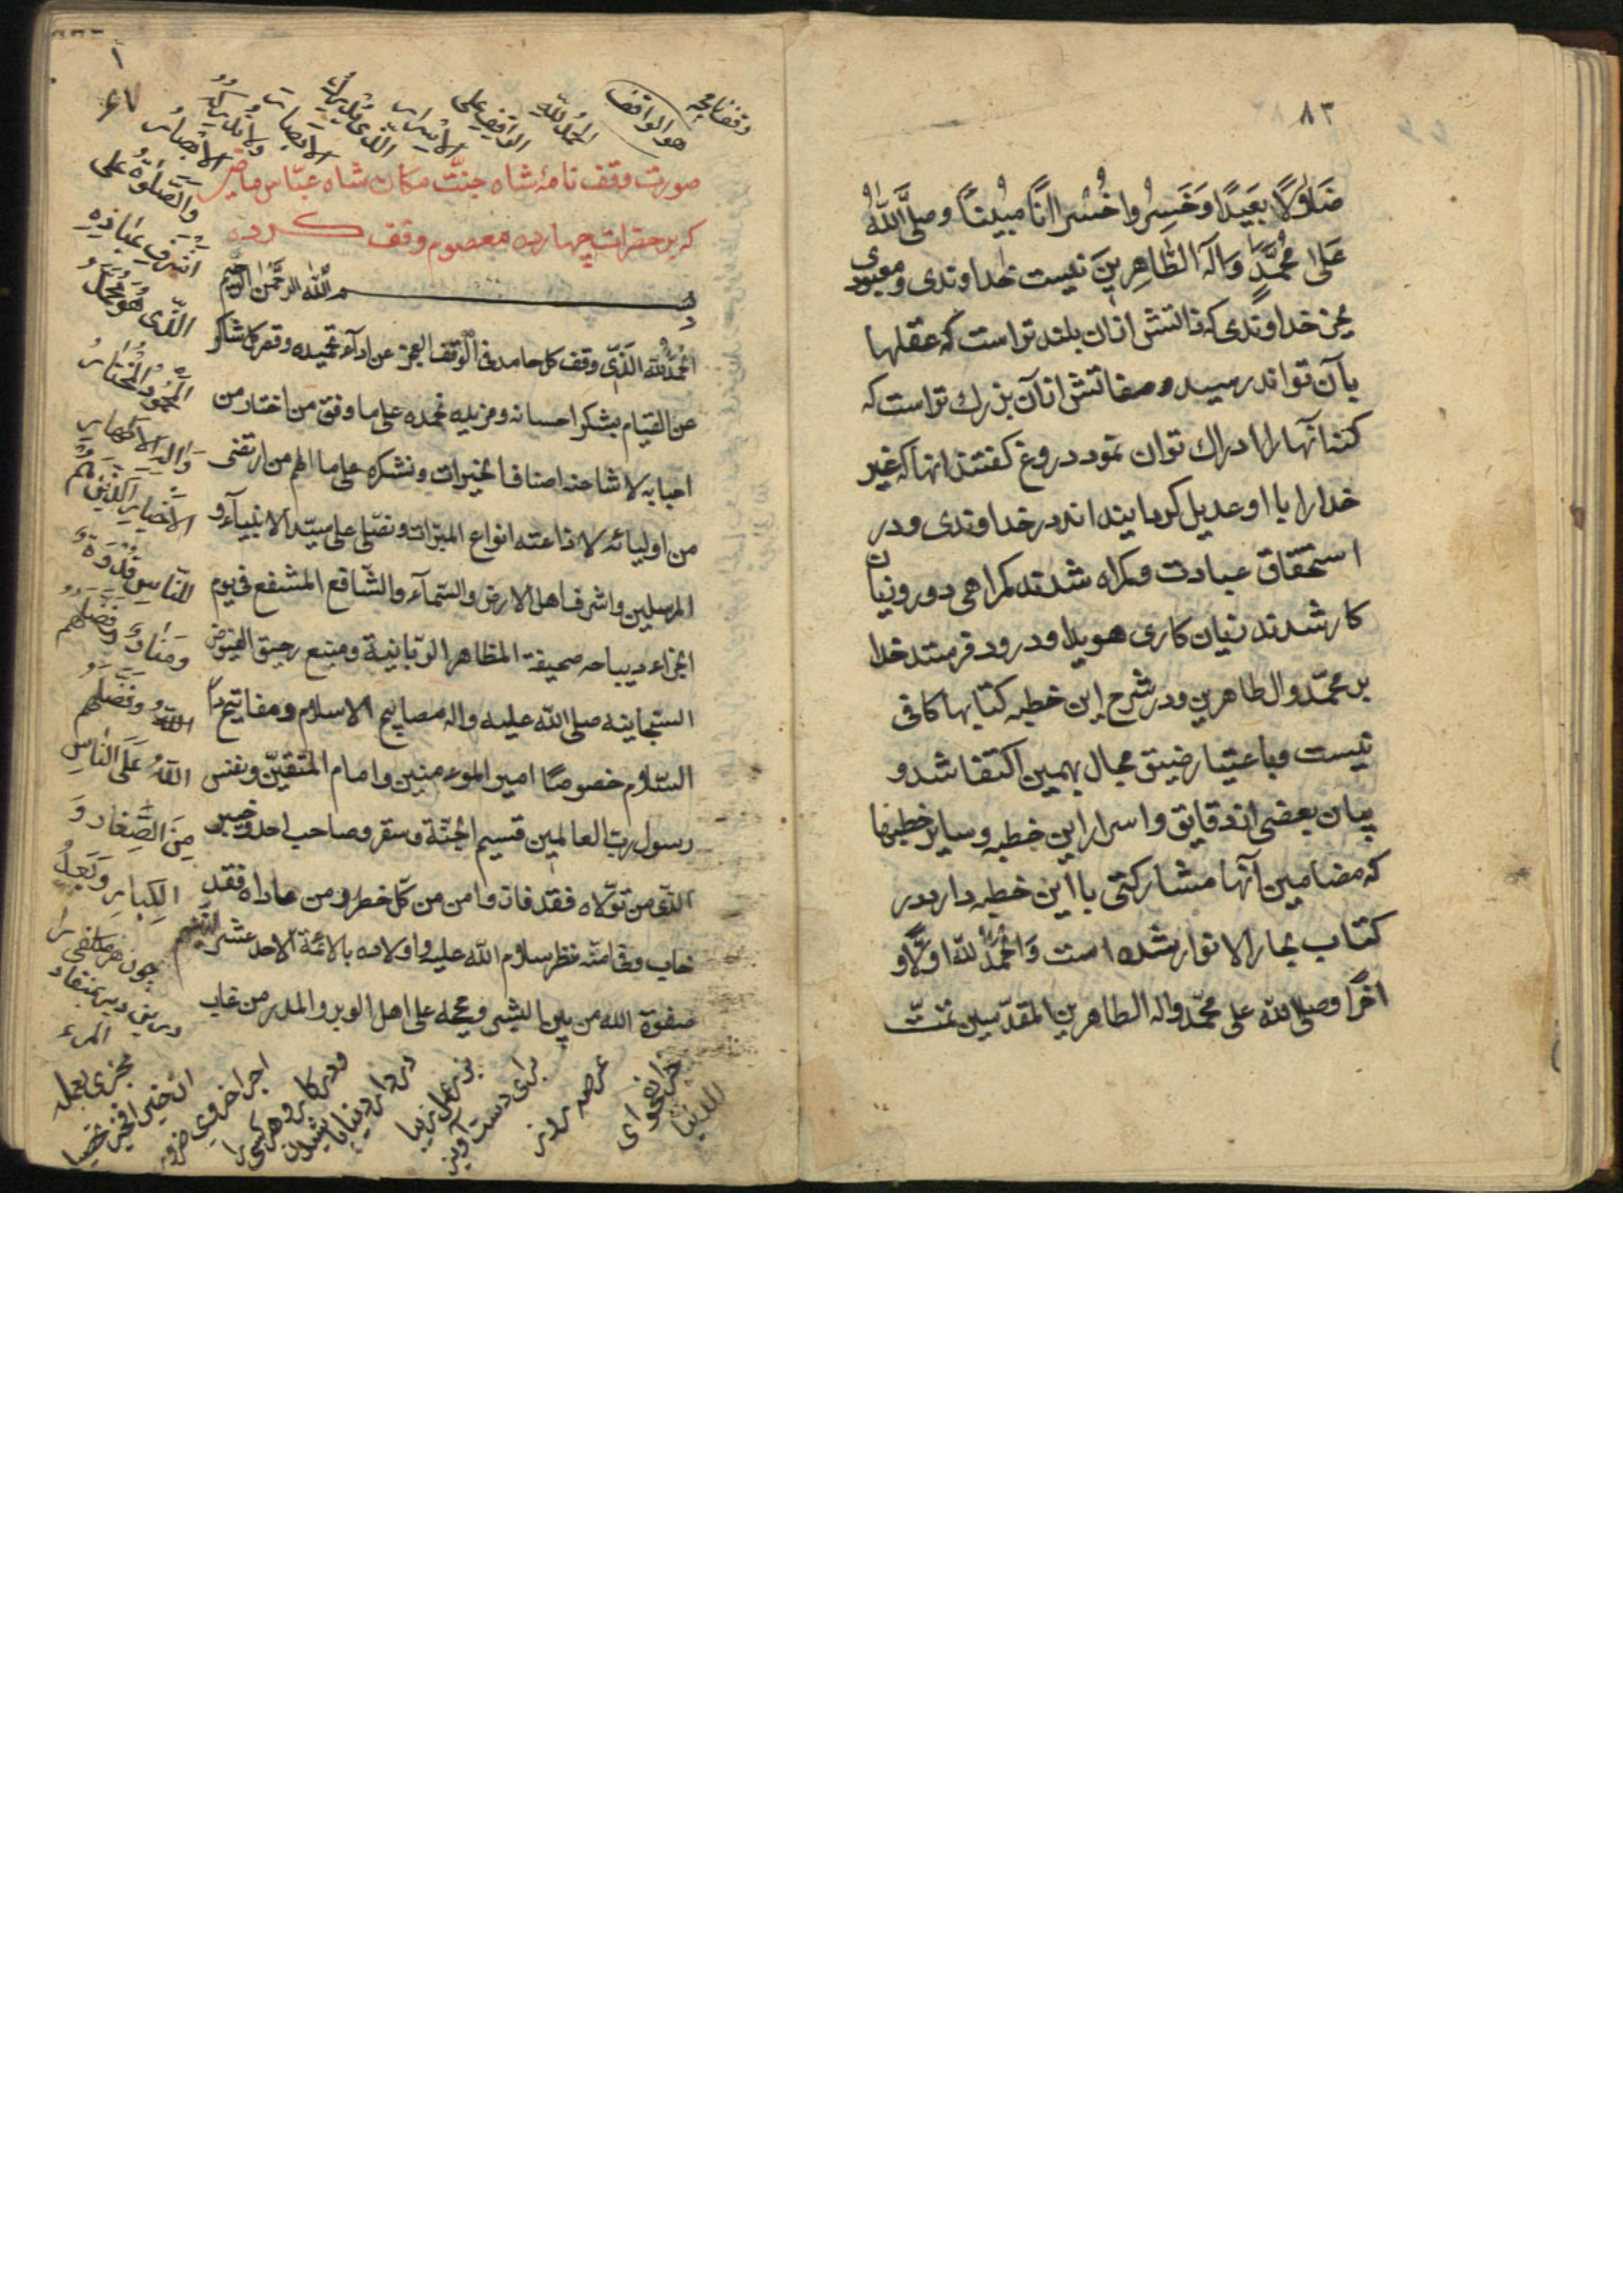 ٨٣
ضَلَالًا بَعِيدًا وَخَسِرُوا خُسْرَانًا مُبِينًا وصلَّى اللّٰهُ
عَلىٰ مُحَمَّدٍ وَآلِهِ الطَّاهِرِينَ نیست خداوندی و معبودی
بجز خداوندی که ذاتش ازان بلند تر است که عقلها
بآن تواند رسید و صفاتش از آن بزرك تر است که
کنه آنها را ادراك توان نمود دروغ کفتند انها که غیر
خدا را با او عدیل کردانیده اند در خداوندی و در
استحقاق عبادت و کمراه شدند کمراهی دور و زیان
کار شدند زیان کاری هویدا و درود فرستد خدا
بر محمّد و ال طاهرین و در شرح این خطبه کتابها کافی
نیست و باعتبار ضیق مجال بهمین اکتفا شد و
بیان بعضی از دقایق و اسرار این خطبه و سایر خطبها
که مضامین آنها مشارکتی با این خطبه دارد در
کتاب بحار الانوار شده است وَالْحَمْدُ لِلّٰه اَوَّلًا و
اخرًا وصلی الله علی محمّد واله الطاهرین المقدّسین تمّت
١
وقفنامچه
هو الواقف
الحمد للّٰه
الواقف علی
الاسرار
الذی یدرك
الابصار
ولا یدرکه
الابصار
وَالصَّلوٰةُ علی
اشرف عباده
الذی هو محمّد
المحمود المختار
واله الاطهار
الاخیار الذین هم
للناس قدوة
ومنار وفضلهم
اللّٰه وفضلهم
اللّٰه علی الناس
مِنَ الصِّغار وَ
الکِبار وبعدُ
چون هر مکلفی را
درین دیر بمقتضای
المرء
مجزی بعمله
ان خیر فخیر
اجر اخروی ضرور
ودر کار و هر کسی را
در دار دنیا
بذر عمل
برای دست آویز
عرصه روز
جزا بفحوای
الدنیا
صورت وقف نامهٔ شاه جنّت مکان شاه عبّاس ماضی
که بر حضرات چهارده معصوم وقف کرده
بسم اللّٰه الرحمن الرحیم
الحمد للّٰه الّذی وقف کل حامد فی الوقف العجز عن اداء تحمیده وقصر کل شاکر
عن القیام بشکر احسانه ومزیده نحمده علی ما وفق من اختار من
احبابه لاشاعة اصناف الخیرات ونشکره علی ما الهم من ارتضی
من اولیائه لاذاعة انواع المبرّات ونصلی علی سیّد الانبیآء و
المرسلین واشرف اهل الارض والسّمآء والشّافع المشفع فی یوم
الجزاء دیباجه صحیفة المظاهر الربّانیة ومنبع رحیق الفیوض
السبحانیه صلی اللّٰه علیه واله مصابیح الاسلام ومفاتیح دار
السّلام خصوصًا امیر المؤمنین وامام المتّقین ونفس
رسول ربّ العالمین قسیم الجنّة وسقر وصاحب احد وخیبر
الّذی من تولّاه فقد فاز وامن من کلّ خطر ومن عاداه فقد
خاب سلام اللّٰه علیه واولاده بالائمّة الاحد عشر
صفوة اللّٰه من بین البشر وحججه علی اهل الوبر والمدر من غاب